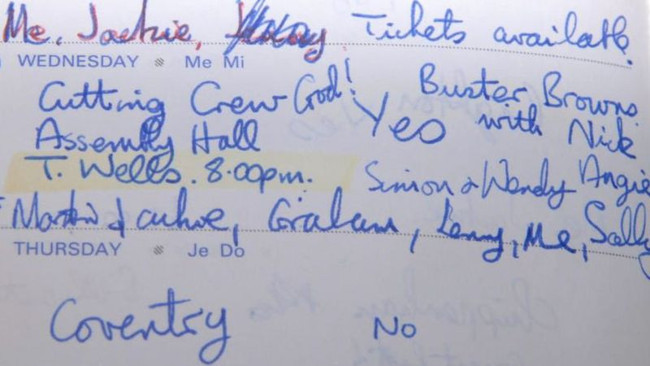 Me, Jackie, Tickets available.
WEDNESDAY Me Mi
Cutting Crew God! Buster Browns
Assembly Hall Yes with Nick
T. Wells. 8.00pm. Simon & Wendy Angie
Graham, Lenny, Me, Sally
THURSDAY Je Do
Coventry No